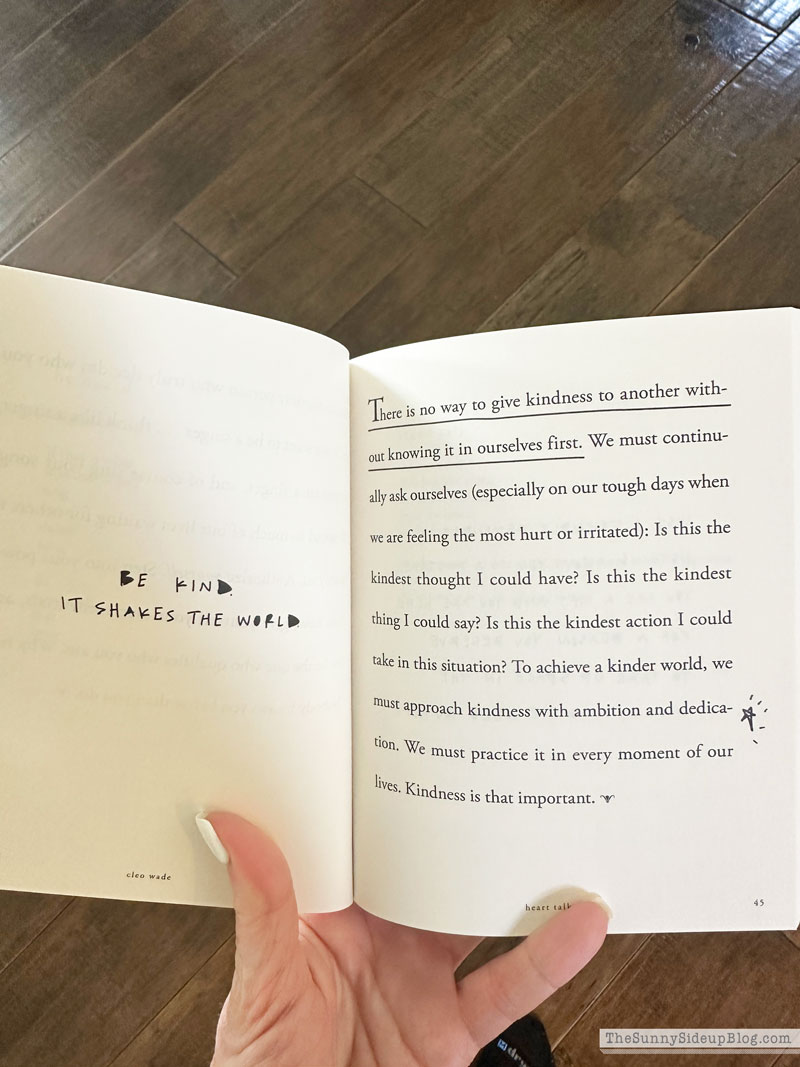 BE KIND.
IT SHAKES THE WORLD.
cleo wade
There is no way to give kindness to another with-
out knowing it in ourselves first. We must continu-
ally ask ourselves (especially on our tough days when
we are feeling the most hurt or irritated): Is this the
kindest thought I could have? Is this the kindest
thing I could say? Is this the kindest action I could
take in this situation? To achieve a kinder world, we
must approach kindness with ambition and dedica-
tion. We must practice it in every moment of our
lives. Kindness is that important.
heart talk
45
TheSunnySideupBlog.com